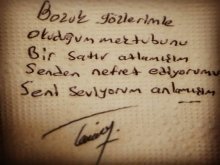 Bozuk gözlerimle
Okuduğum mektubunu
Bir Satır atlamışım
Senden nefret ediyorumu
Seni Seviyorum anlamışım